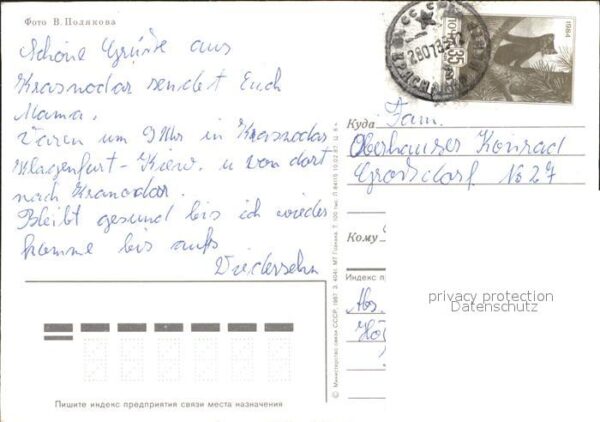 Фото В. Полякова
Schöne Grüße aus
Krasnodar sendet Euch
Mama.
Varen um 9 Uhr in Krasnodar
Klagenfurt - Kiew. u von dort
nach Kranodar.
Bleibt gesund bis ich wieder
komme bis aufs
Wiedersehn
1984
ПОЧТА
35
Куда Fam.
Oberhauser Konrad
Grafsdorf No 27
Кому
Индекс п
Abs.
privacy protection
Datenschutz
Пишите индекс предприятия связи места назначения
© Министерство связи СССР, 1987.